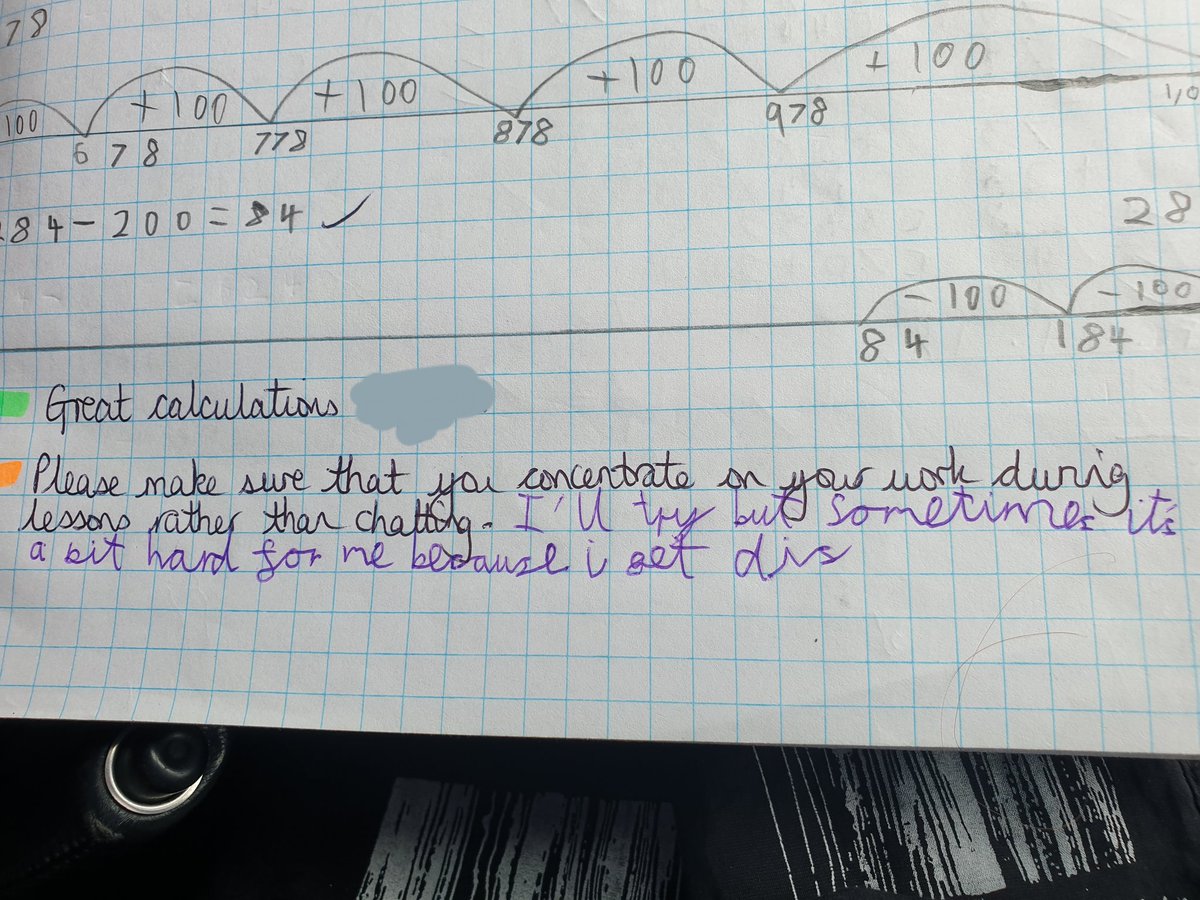 78
100 +100 +100 +100 + 100
678 778 878 978 1,0
284 - 200 = 84 ✓
28
- 100 - 100
84 184
Great calculations
Please make sure that you concentrate on your work during
lessons rather than chatting. I'll try but sometimes it's
a bit hard for me because i get dis